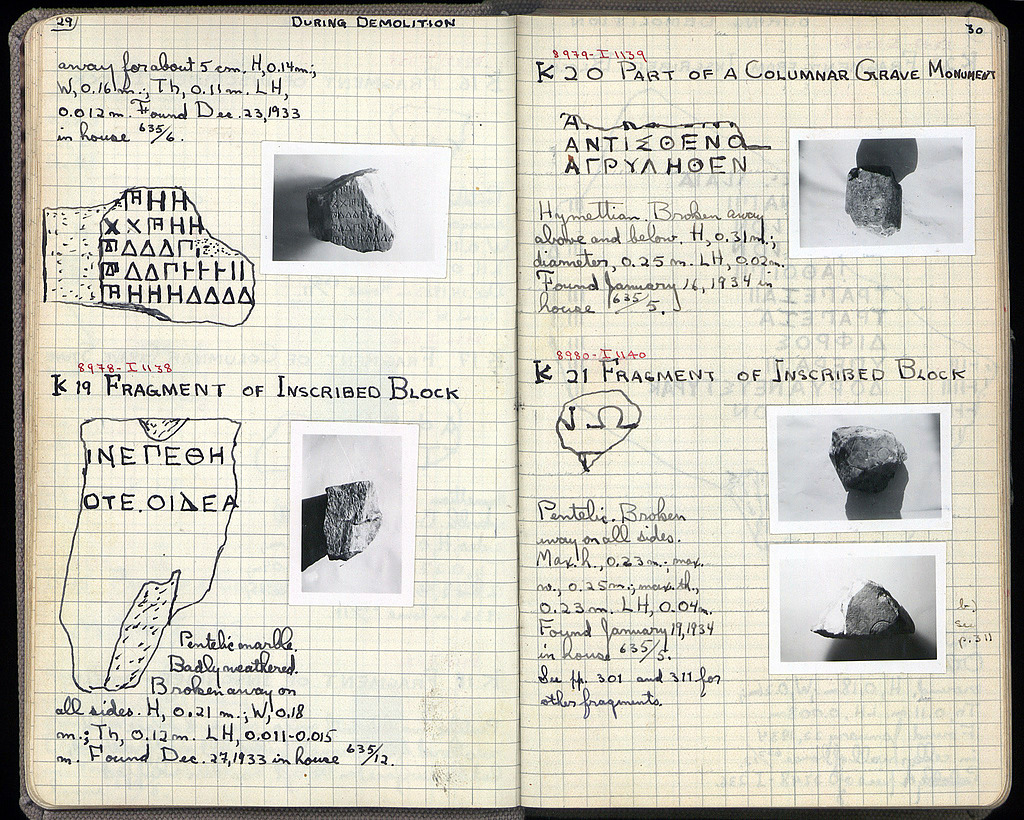 29
DURING DEMOLITION
away for about 5 cm. H, 0.14 m.;
W, 0.16 m.; Th, 0.11 m. LH,
0.012 m. Found Dec. 23, 1933
in house 635/6.
ΗΗ
ΧΧ ΗΗ
ΔΔΔΓΙ
ΔΔΓΗΗΗΙΙ
ΗΗΗΔΔΔΔ
8978-I 1138
K 19 FRAGMENT OF INSCRIBED BLOCK
ΙΝΕΠΕΘΗ
ΟΤΕ.ΟΙΔΕΑ
Pentelic marble.
Badly weathered.
Broken away on
all sides. H, 0.21 m.; W, 0.18
m.; Th, 0.12 m. LH, 0.011-0.015
m. Found Dec. 27, 1933 in house 635/12.
30
8979-I 1139
K 20 PART OF A COLUMNAR GRAVE MONUMENT
ΑΝΤΙΣΘΕΝΟ
ΑΓΡΥΛΗΘΕΝ
Hymettian. Broken away
above and below. H, 0.31 m.;
diameter, 0.25 m. LH, 0.02 m.
Found January 16, 1934 in
house 635/5.
8980-I 1140
K 21 FRAGMENT OF INSCRIBED BLOCK
Ω
Pentelic. Broken
away on all sides.
Max. h., 0.23 m.; max.
w., 0.25 m.; max. th.,
0.23 m. LH, 0.04 m.
Found January 19, 1934
in house 635/5.
See pp. 301 and 311 for
other fragments.
b)
see
p. 311